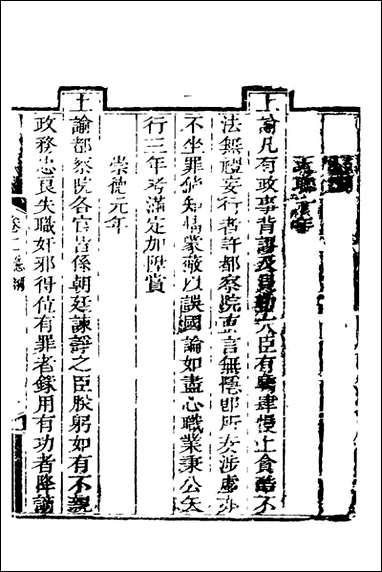 上諭凡有政事背謬及貝勒大臣有驕肆慢上貪酷不
法無禮妄行者許都察院直言無隱即所奏涉虛亦
不坐罪倘知情蒙蔽以誤國論如盡心職業秉公矢
行三年考滿定加陞賞
崇德元年
上諭都察院各官皆係朝廷諫諍之臣朕躬如有不親
政務忠良失職奸邪得位有罪者錄用有功者降謫
卷二憲綱